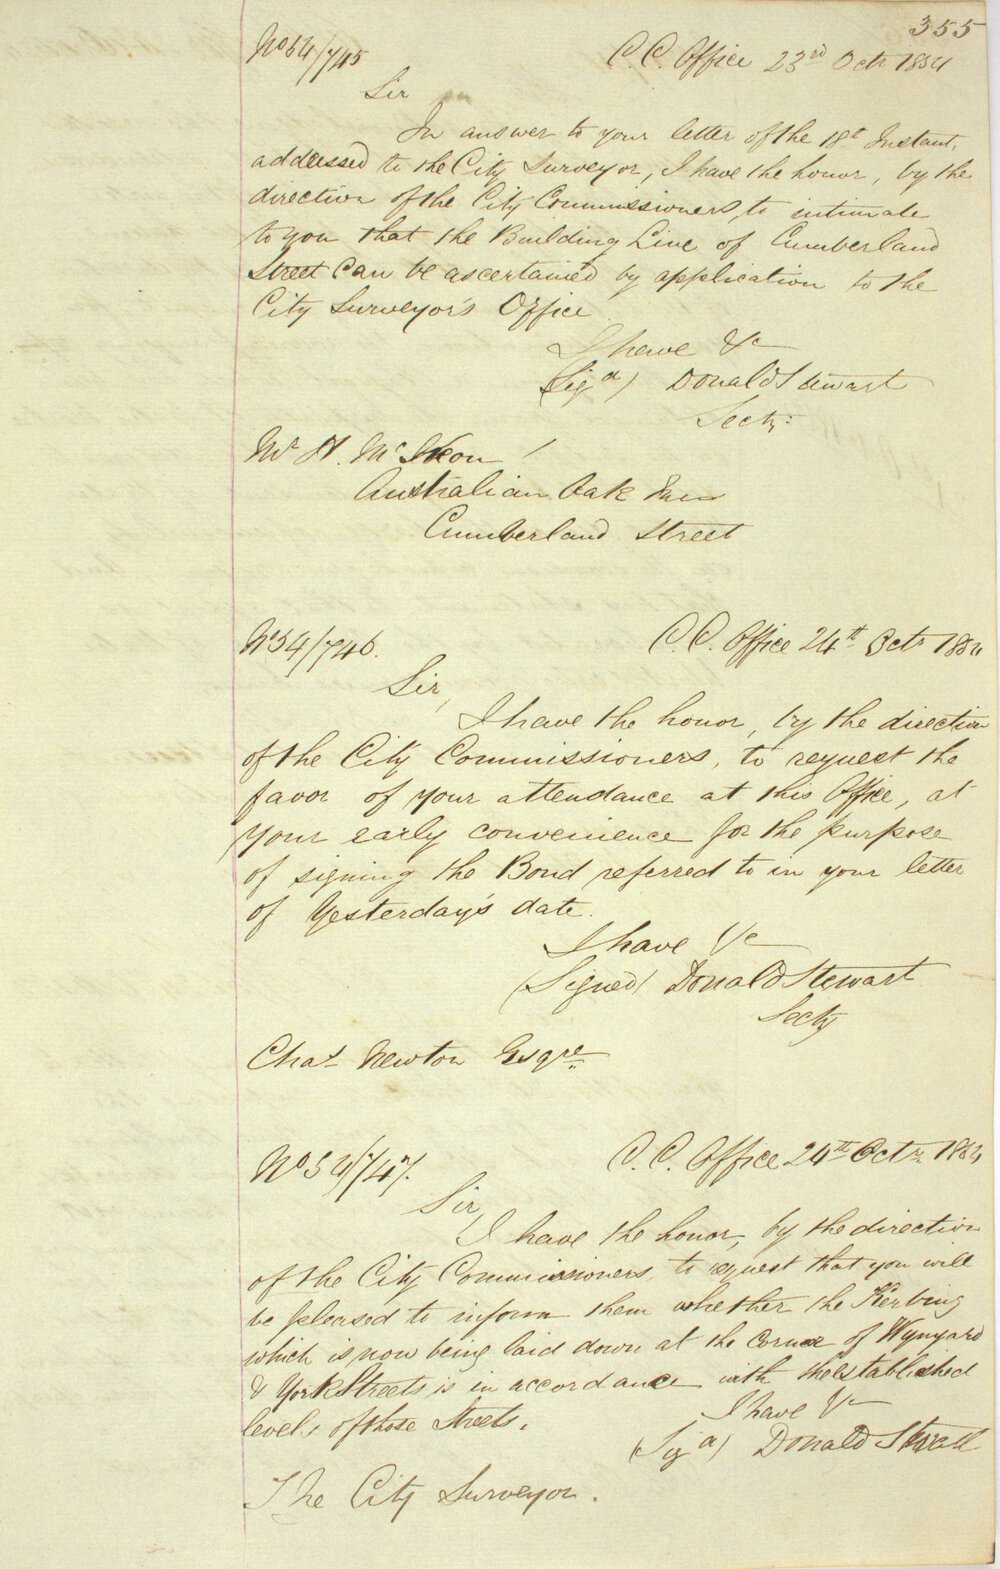 355
No 54/745 C. C. Office 23rd Octr 1854
Sir
In answer to your letter of the 18th Instant,
addressed to the City Surveyor, I have the honor, by the
direction of the City Commissioners to intimate
to you that the Building Line of Cumberland
Street can be ascertained by application to the
City Surveyor's Office
I have &c
(Sigd) Donald Stewart
Secty:
Mr H. Mc
Australian Oak Inn
Cumberland Street
No 54/746. C. C. Office 24th Octr 1854
Sir,
I have the honor, by the direction
of the City Commissioners, to request the
favor of your attendance at this Office, at
your early convenience for the purpose
of signing the Bond referred to in your letter
of Yesterday's date.
I have &c
(Signed) Donald Stewart
Secty
Chas Newton Esqre
No 54/747. C. C. Office 24th Octr. 1854
Sir,
I have the honor, by the direction
of the City Commissioners, to request that you will
be pleased to inform them whether the Kerbing
which is now being laid down at the corner of Wynyard
& York Streets is in accordance with the established
levels of those Streets.
I have &c
(Sigd) Donald Stewart
The City Surveyor.